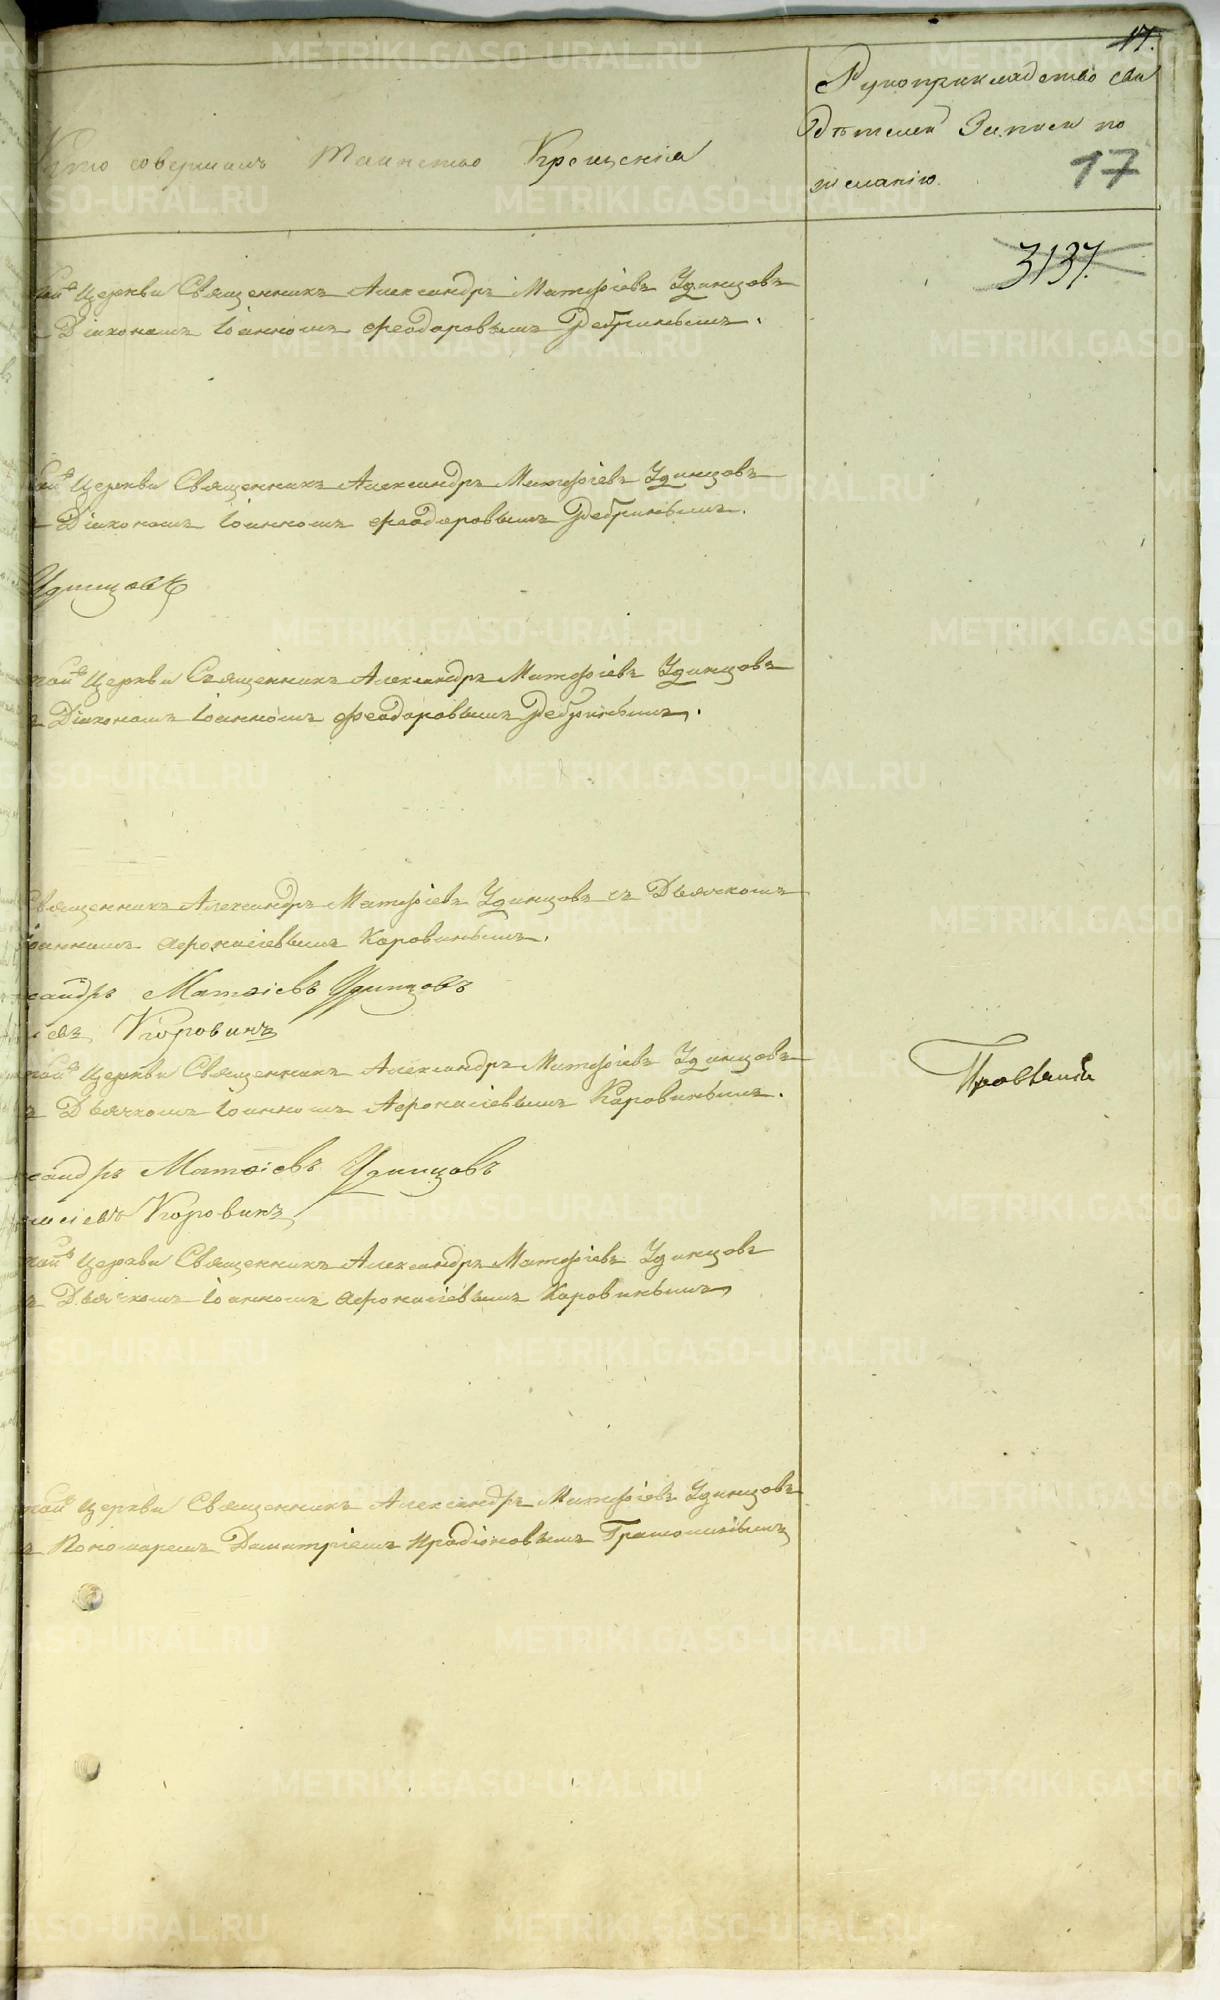 17.
Кто совершалъ Таинство Крещенія
Рукоприкладство сви
дѣтелей Записи по
желанію.
17
3137.
Церкви Священникъ Александръ Матѳіевъ Удинцовъ
Діакономъ Іоанномъ Ѳеодоровымъ Дебринымъ.
Церкви Священникъ Александръ Матѳіевъ Удинцовъ
Діакономъ Іоанномъ Ѳеодоровымъ Дебринымъ.
Удинцовъ
Церкви Священникъ Александръ Матѳіевъ Удинцовъ
Діакономъ Іоанномъ Ѳеодоровымъ Дебринымъ.
Священникъ Александръ Матѳіевъ Удинцовъ съ Дьячкомъ
Іоанномъ Аѳонасіевымъ Коровинымъ.
сандръ Матѳіевъ Удинцовъ
іевъ Коровинъ
Церкви Священникъ Александръ Матѳіевъ Удинцовъ
Дьячкомъ Іоанномъ Аѳонасіевымъ Коровинымъ.
сандръ Матѳіевъ Удинцовъ
насіевъ Коровинъ
Церкви Священникъ Александръ Матѳіевъ Удинцовъ
Дьячкомъ Іоанномъ Аѳонасіевымъ Коровинымъ
Церкви Священникъ Александръ Матѳіевъ Удинцовъ
Пономаремъ Димитріемъ Иродіоновымъ
METRIKI.GASO-URAL.RU